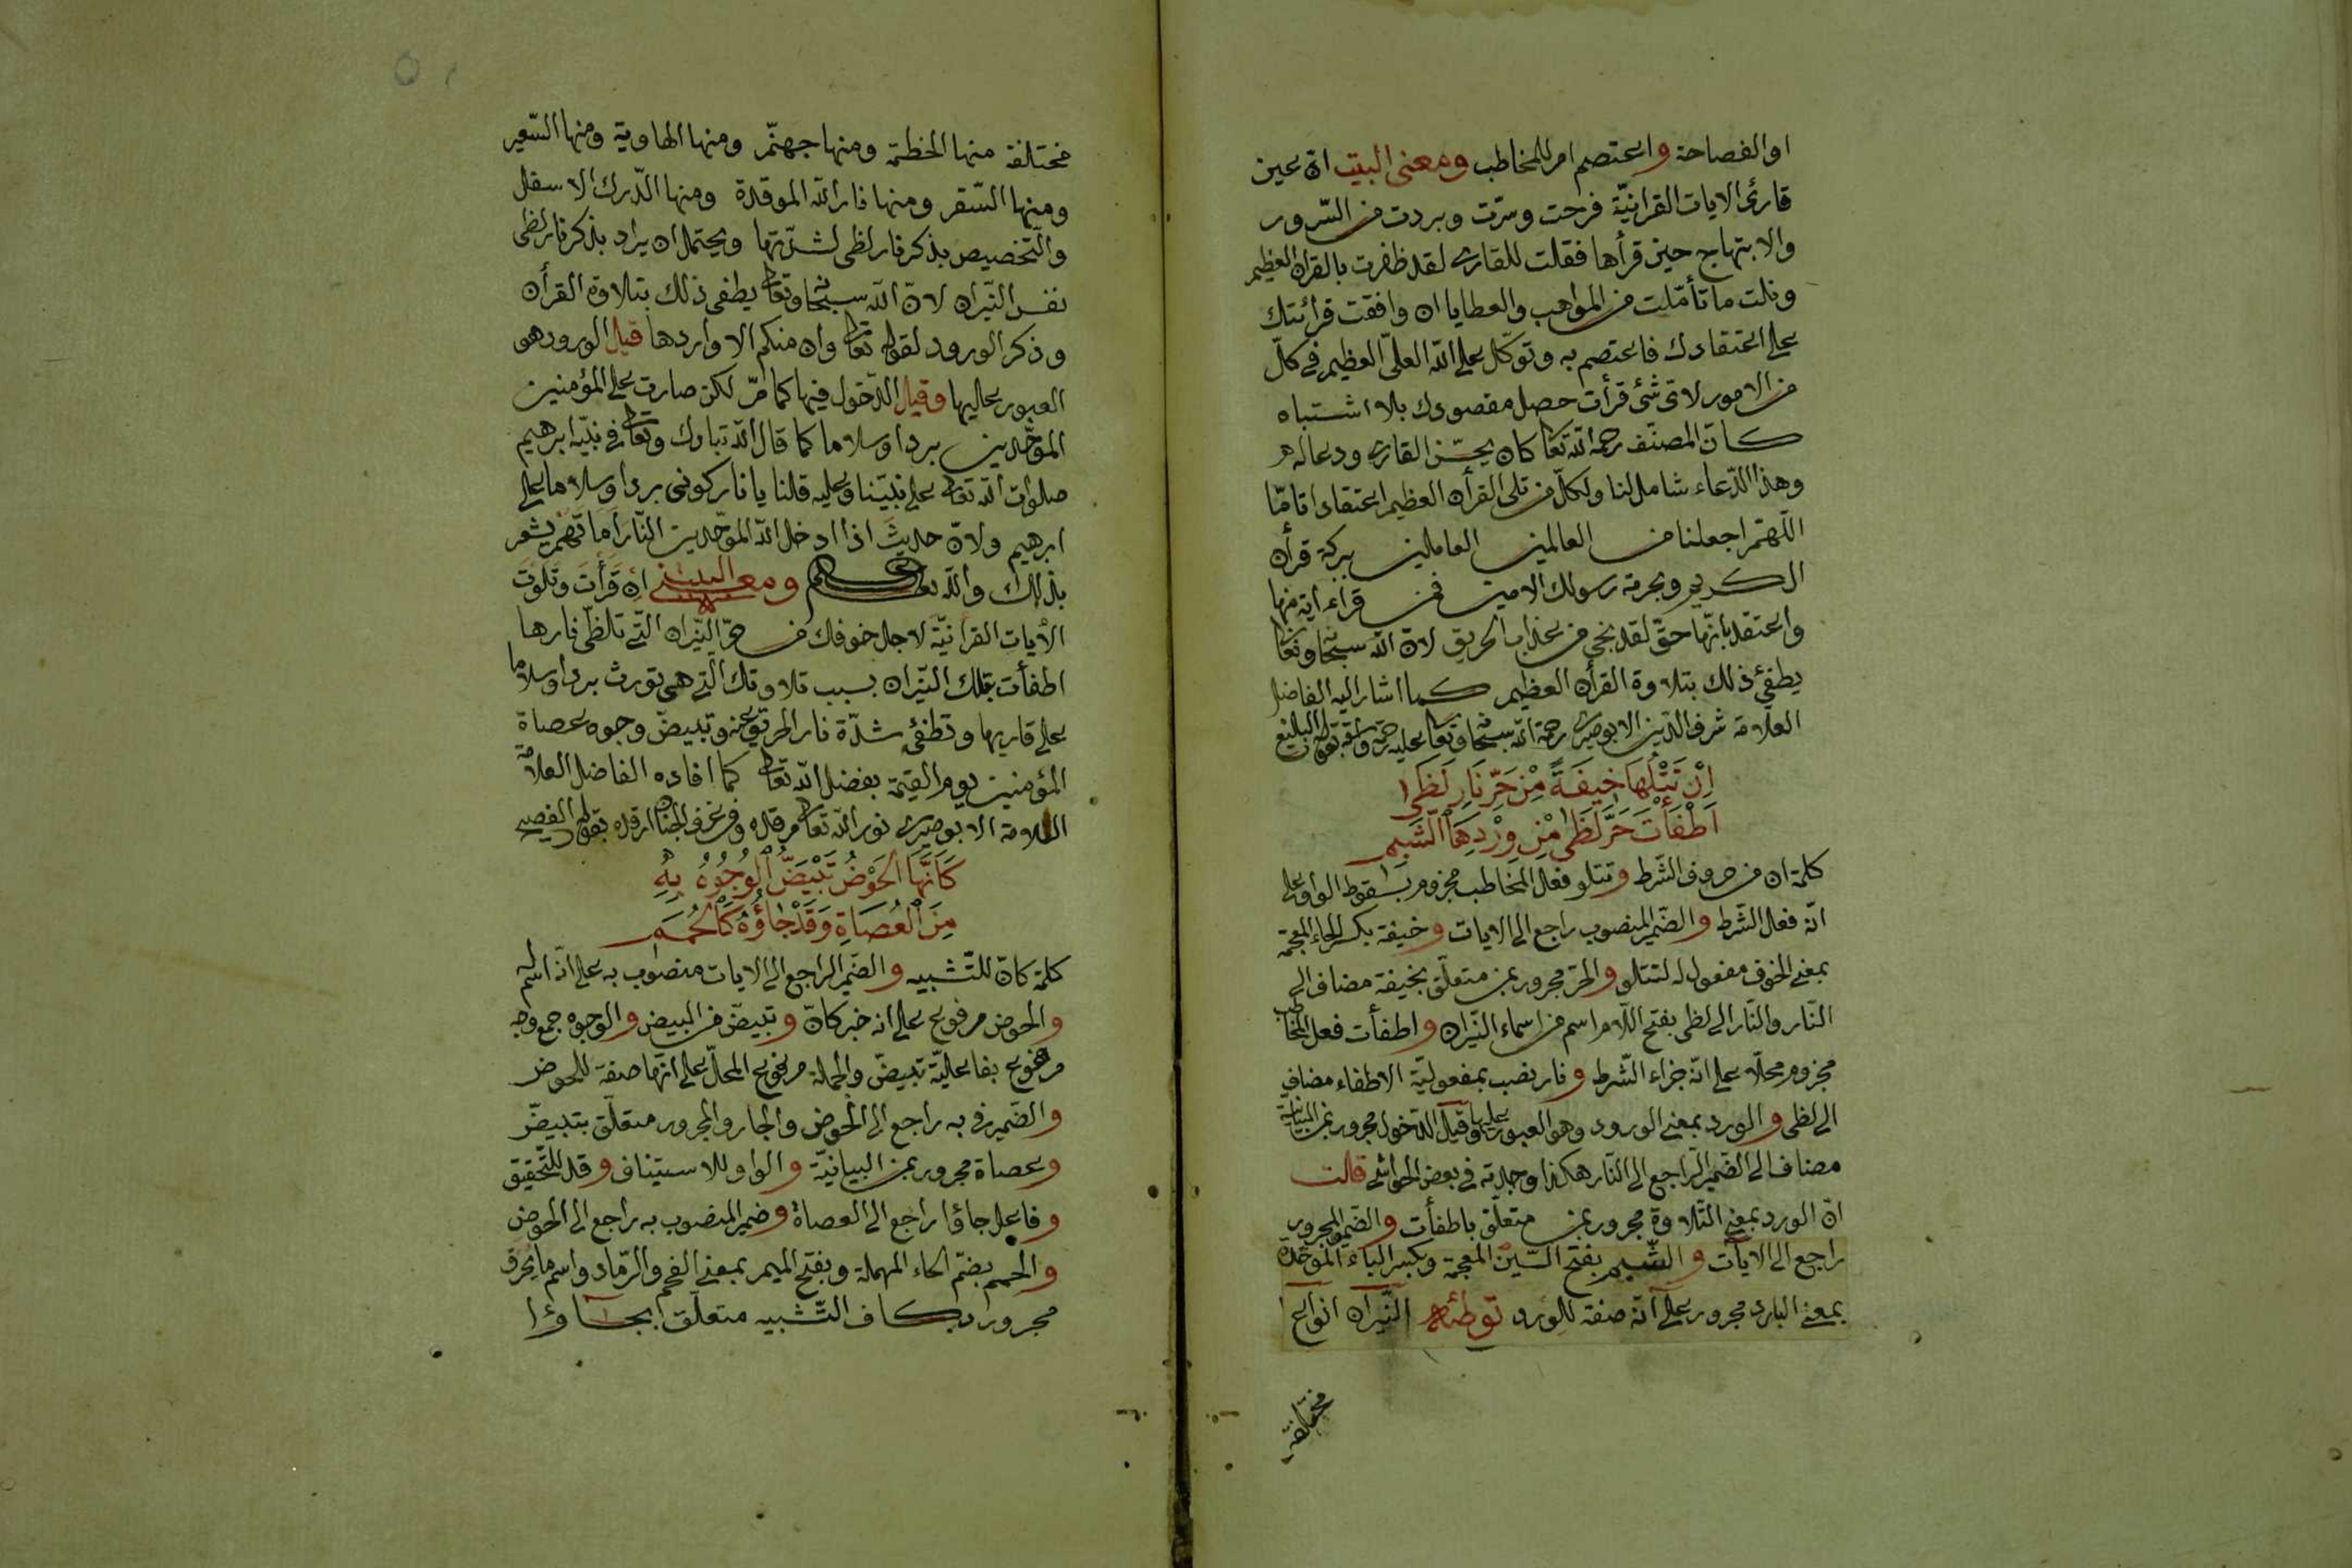 او الفصاحة واعتصم امر للمخاطب ومعنى البيت انّ عين
قارئ الايات القرانيّة فرحت وسرّت وبردت من السّرور
والابتهاج حين قرأها فقلت للقارى لقد ظفرت بالقران العظيم
ونلت ما تأمّلت من المواهب والعطايا ان وافقت قرائتك
على اعتقادك فاعتصم به وتوكّل على الله العلىّ العظيم فى كلّ
من الامور لاىّ شئ قرأت حصل مقصودك بلا اشتباه
كانّ المصنّف رحمه الله تعالى كان يحسّن القارى ودعا له
وهذا الدّعاء شامل لنا ولكلّ من تلى القرأن العظيم اعتقادا تامّا
اللّهمّ اجعلنا من العالمين العاملين ببركة قرأن
الكريم وبحرمة رسولك الامين فمن قراء اية منها
واعتقد بانّها حقّ لقد نجى من عذاب الحريق لانّ الله سبحانه وتعالى
يطفئ ذلك بتلاوة القرأن العظيم كما اشار اليه الفاضل
العلّامة شرف الدّين الابوصيرى رحمة الله سبحانه وتعالى عليه بقوله البليغ
اِنْ تَتْلُهَا خِيفَةً مِنْ حَرِّ نَارِ لَظَى
اَطْفَأْتَ حَرَّ لَظَى مِنْ وِرْدِهَا الشَّبِمِ
كلمة ان من حروف الشّرط وتتلو فعل المخاطب مجزوم بسقوط الواو على
انّه فعل الشّرط والضّمير المنصوب راجع الى الايات وخيفة بكسر الخاء المعجمة
بمعنى الخوف مفعول له لتتلو والحرّ مجرور بمن متعلّق بخيفة مضاف الى
النّار والنّار الى لظى بفتح اللّام اسم من اسماء النّيران واطفأت فعل المخاطب
مجزوم محلّا على انّه جزاء الشّرط ونار نصب بمفعوليّة الاطفاء مضاف
الى لظى والورد بمعنى الورود وهو العبور عليها وقيل الدّخول مجرور بمن البيانيّة
مضاف الى الضّمير الرّاجع الى النّار هكذا وجدته فى بعض الحواشى قالت
انّ الورد بمعنى التّلاوة مجرور بمن متعلّق باطفأت والضّمير المجرور
راجع الى الايات والشّبم بفتح الشّين المعجمة وبكسر الباء الموحّدة
بمعنى البارد مجرور على انّه صفة للورد توطئه النّيران انواع
مختلفة
مختلفة منها الحطمة ومنها جهنّم ومنها الهاوية ومنها السّعير
ومنها السّقر ومنها نار الله الموقدة ومنها الدّرك الاسفل
والتّخصيص بذكر نار لظى لشدّتها ويحتمل ان يراد بذكر نار لظى
نفس النّيران لانّ الله سبحانه وتعالى يطفى ذلك بتلاوة القرأن
وذكر الورود لقوله تعالى وان منكم الا واردها قيل الورود هو
العبور عليها وقيل الدّخول فيها كما مرّ لكن صارت على المؤمنين
الموحّدين بردا وسلاما كما قال الله تبارك وتعالى فى نبيّه ابرهيم
صلوات الله تعالى على نبيّنا وعليه قلنا يا نار كونى بردا وسلاما على
ابرهيم ولانّ حديث اذا ادخل الله الموحّدين النّار اماتهم يشعر
بذلك والله تعالى اعلم ومعنى البيت ان قرأت وتلوت
الأيات القرانيّة لاجل خوفك من حرّ النّيران الّتى تلظّى نارها
اطفأت تلك النّيران بسبب تلاوتك الّتى هى تورث بردا وسلاما
على قاريها وتطفئ شدّة نار الحريق عنه وتبيضّ وجوه عصاة
المؤمنين يوم القيمة بفضل الله تعالى كما افاده الفاضل العلّامة
العلامة الابوصيرى نور الله تعالى مرقده وفى غرف الجنان ارقده بقوله الفصيح
كَاَنَّهَا الْحَوْضُ تَبْيَضُّ الْوُجُوهُ بِهِ
مِنَ الْعُصَاةِ وَقَدْ جَاؤُهُ كَالْحُمَمِ
كلمة كانّ للتّشبيه والضّمير الراجع الى الايات منصوب به على انّه اسم له
والحوض مرفوع على انه خبر كانّ وتبيضّ من البيض والوجوه جمع وجه
مرفوع بفاعليّة تبيضّ والجملة مرفوع المحلّ على انّها صفة للحوض
والضّمير فى به راجع الى الحوض والجار والمجرور متعلّق بتبيضّ
وعصاة مجرور بمن البيانيّة والواو للاستيناف وقد للتّحقيق
وفاعل جاؤا راجع الى العصاة وضمير المنصوب به راجع الى الحوض
والحمم بضمّ الحاء المهملة وبفتح الميم بمعنى الفحم والرّماد واسم ما يحرق
مجرور بكاف التّشبيه متعلّق بجاؤا